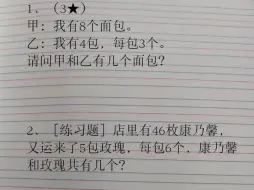 1、（3★）
甲：我有8个面包。
乙：我有4包，每包3个。
请问甲和乙有几个面包？
2、［练习题］店里有46枚康乃馨，
又运来了5包玫瑰，每包6个。康乃馨
和玫瑰共有几个？